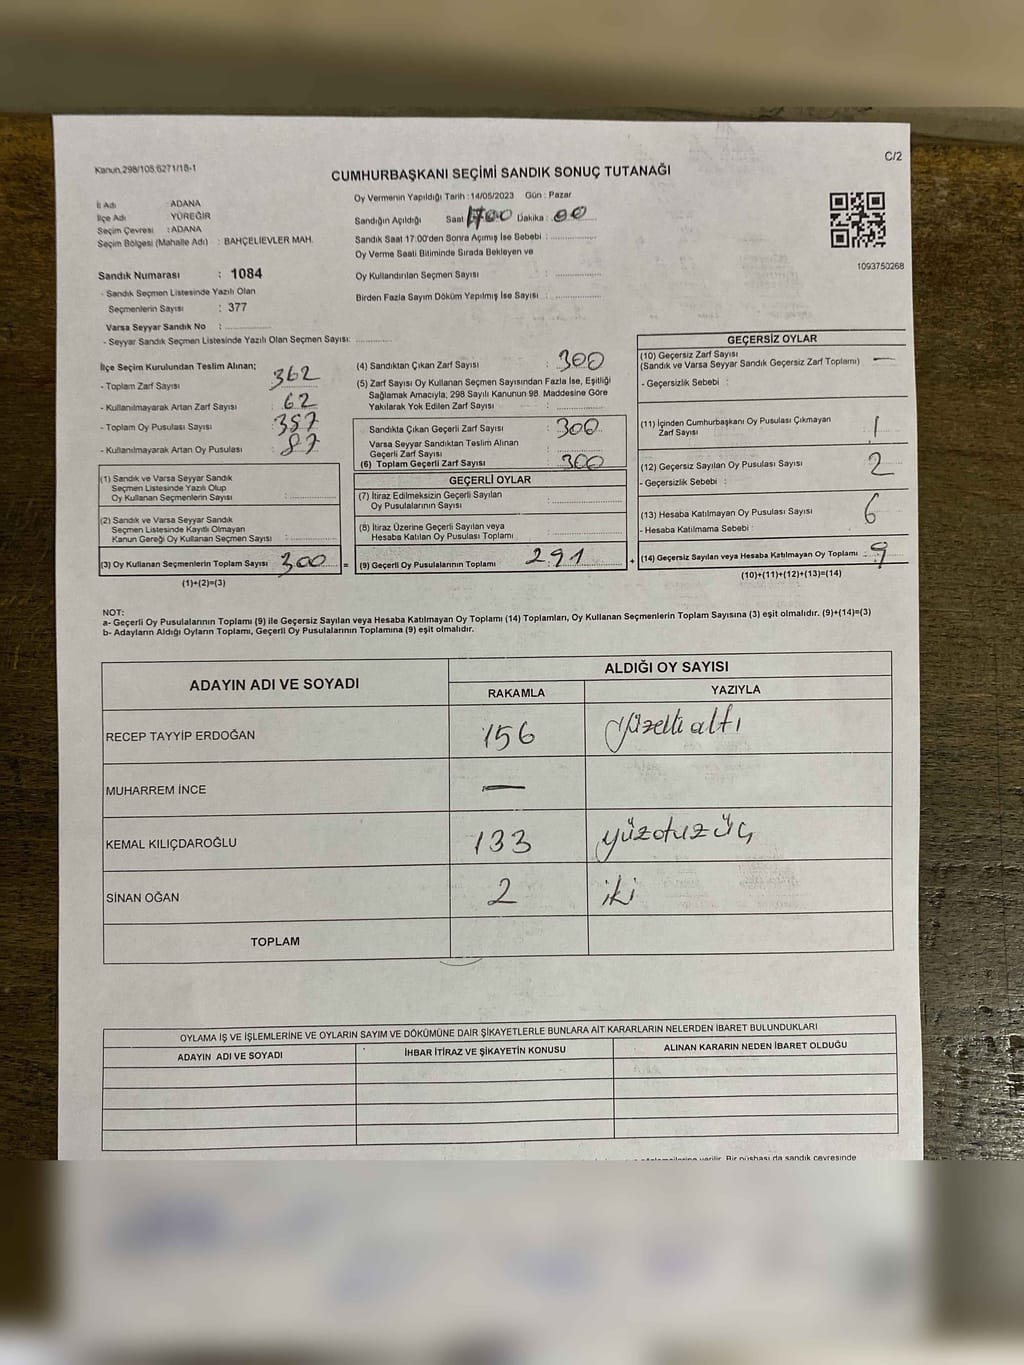 Kanun.298/105,6271/18-1
C/2
CUMHURBAŞKANI SEÇİMİ SANDIK SONUÇ TUTANAĞI
İl Adı : ADANA
İlçe Adı : YÜREĞİR
Seçim Çevresi : ADANA
Seçim Bölgesi (Mahalle Adı) : BAHÇELİEVLER MAH.
Sandık Numarası : 1084
- Sandık Seçmen Listesinde Yazılı Olan
Seçmenlerin Sayısı : 377
Varsa Seyyar Sandık No :
- Seyyar Sandık Seçmen Listesinde Yazılı Olan Seçmen Sayısı:
Oy Vermenin Yapıldığı Tarih : 14/05/2023 Gün : Pazar
Sandığın Açıldığı Saat 1700 Dakika : 00
Sandık Saat 17:00'den Sonra Açımış İse Sebebi :
Oy Verme Saati Bitiminde Sırada Bekleyen ve
Oy Kullandırılan Seçmen Sayısı :
Birden Fazla Sayım Döküm Yapılmış İse Sayısı :
1093750268
İlçe Seçim Kurulundan Teslim Alınan;
- Toplam Zarf Sayısı : 362
- Kullanılmayarak Artan Zarf Sayısı : 62
- Toplam Oy Pusulası Sayısı : 357
- Kullanılmayarak Artan Oy Pusulası : 87
(1) Sandık ve Varsa Seyyar Sandık
Seçmen Listesinde Yazılı Olup
Oy Kullanan Seçmenlerin Sayısı :
(2) Sandık ve Varsa Seyyar Sandık
Seçmen Listesinde Kayıtlı Olmayan
Kanun Gereği Oy Kullanan Seçmen Sayısı :
(3) Oy Kullanan Seçmenlerin Toplam Sayısı : 300 =
(1)+(2)=(3)
(4) Sandıktan Çıkan Zarf Sayısı : 300
(5) Zarf Sayısı Oy Kullanan Seçmen Sayısından Fazla İse, Eşitliği
Sağlamak Amacıyla, 298 Sayılı Kanunun 98. Maddesine Göre
Yakılarak Yok Edilen Zarf Sayısı :
Sandıkta Çıkan Geçerli Zarf Sayısı : 300
Varsa Seyyar Sandıktan Teslim Alınan
Geçerli Zarf Sayısı :
(6) Toplam Geçerli Zarf Sayısı : 300
GEÇERLİ OYLAR
(7) İtiraz Edilmeksizin Geçerli Sayılan
Oy Pusulalarının Sayısı :
(8) İtiraz Üzerine Geçerli Sayılan veya
Hesaba Katılan Oy Pusulası Toplamı :
(9) Geçerli Oy Pusulalarının Toplamı : 291 +
GEÇERSİZ OYLAR
(10) Geçersiz Zarf Sayısı : —
(Sandık ve Varsa Seyyar Sandık Geçersiz Zarf Toplamı)
- Geçersizlik Sebebi :
(11) İçinden Cumhurbaşkanı Oy Pusulası Çıkmayan
Zarf Sayısı : 1
(12) Geçersiz Sayılan Oy Pusulası Sayısı : 2
- Geçersizlik Sebebi :
(13) Hesaba Katılmayan Oy Pusulası Sayısı : 6
- Hesaba Katılmama Sebebi :
(14) Geçersiz Sayılan veya Hesaba Katılmayan Oy Toplamı : 9
(10)+(11)+(12)+(13)=(14)
NOT:
a- Geçerli Oy Pusulalarının Toplamı (9) ile Geçersiz Sayılan veya Hesaba Katılmayan Oy Toplamı (14) Toplamları, Oy Kullanan Seçmenlerin Toplam Sayısına (3) eşit olmalıdır. (9)+(14)=(3)
b- Adayların Aldığı Oyların Toplamı, Geçerli Oy Pusulalarının Toplamına (9) eşit olmalıdır.
ADAYIN ADI VE SOYADI ALDIĞI OY SAYISI
RAKAMLA YAZIYLA
RECEP TAYYİP ERDOĞAN 156 yüzelli altı
MUHARREM İNCE —
KEMAL KILIÇDAROĞLU 133 yüzotuz üç
SİNAN OĞAN 2 iki
TOPLAM
OYLAMA İŞ VE İŞLEMLERİNE VE OYLARIN SAYIM VE DÖKÜMÜNE DAİR ŞİKAYETLERLE BUNLARA AİT KARARLARIN NELERDEN İBARET BULUNDUKLARI
ADAYIN ADI VE SOYADI İHBAR İTİRAZ VE ŞİKAYETİN KONUSU ALINAN KARARIN NEDEN İBARET OLDUĞU
verilir. Bir nüshası da sandık çevresinde